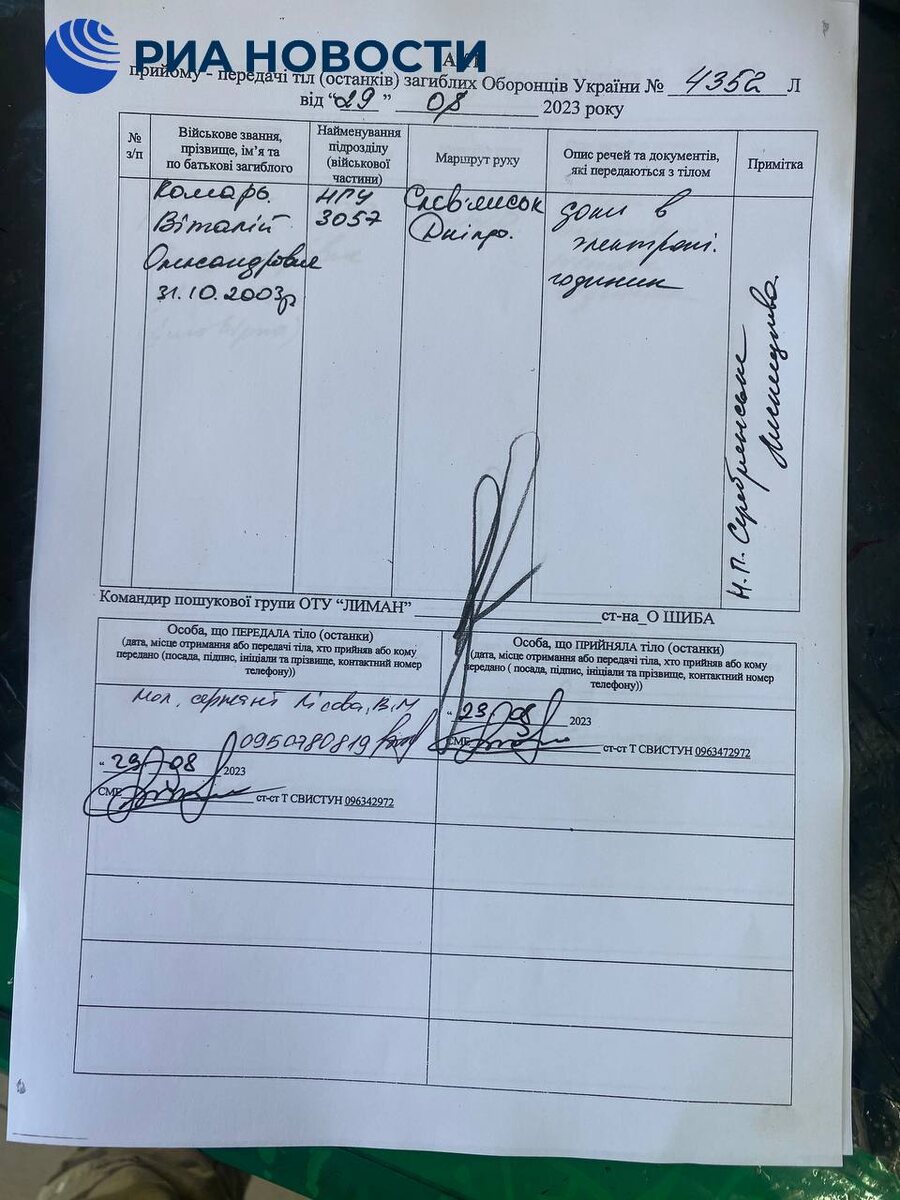 РИА НОВОСТИ
прийому - передачі тіл (останків) загиблих Оборонців України № 4352 Л
від “29” 08 2023 року
№ з/п
Військове звання, прізвище, ім’я та по батькові загиблого
Найменування підрозділу (військової частини)
Маршрут руху
Опис речей та документів, які передаються з тілом
Примітка
Комарь
Віталій
Олександрович
31.10.2003р
НГУ
3057
Слов'янськ
Дніпро.
доки в
електроні.
годиник
Н.П. Серебрянське
лисництво
Командир пошукової групи ОТУ “ЛИМАН” ст-на_О ШИБА
Особа, що ПЕРЕДАЛА тіло (останки)
(дата, місце отримання або передачі тіла, хто прийняв або кому
передано (посада, підпис, ініціали та прізвище, контактний номер
телефону))
Особа, що ПРИЙНЯЛА тіло (останки)
(дата, місце отримання або передачі тіла, хто прийняв або кому
передано ( посада, підпис, ініціали та прізвище, контактний номер
телефону))
мол. сержант Лісова, В.М
0950780819
“29” 08 2023
СМЕ ст-ст Т СВИСТУН 096342972
“29” 08 2023
СМЕ ст-ст Т СВИСТУН 0963472972